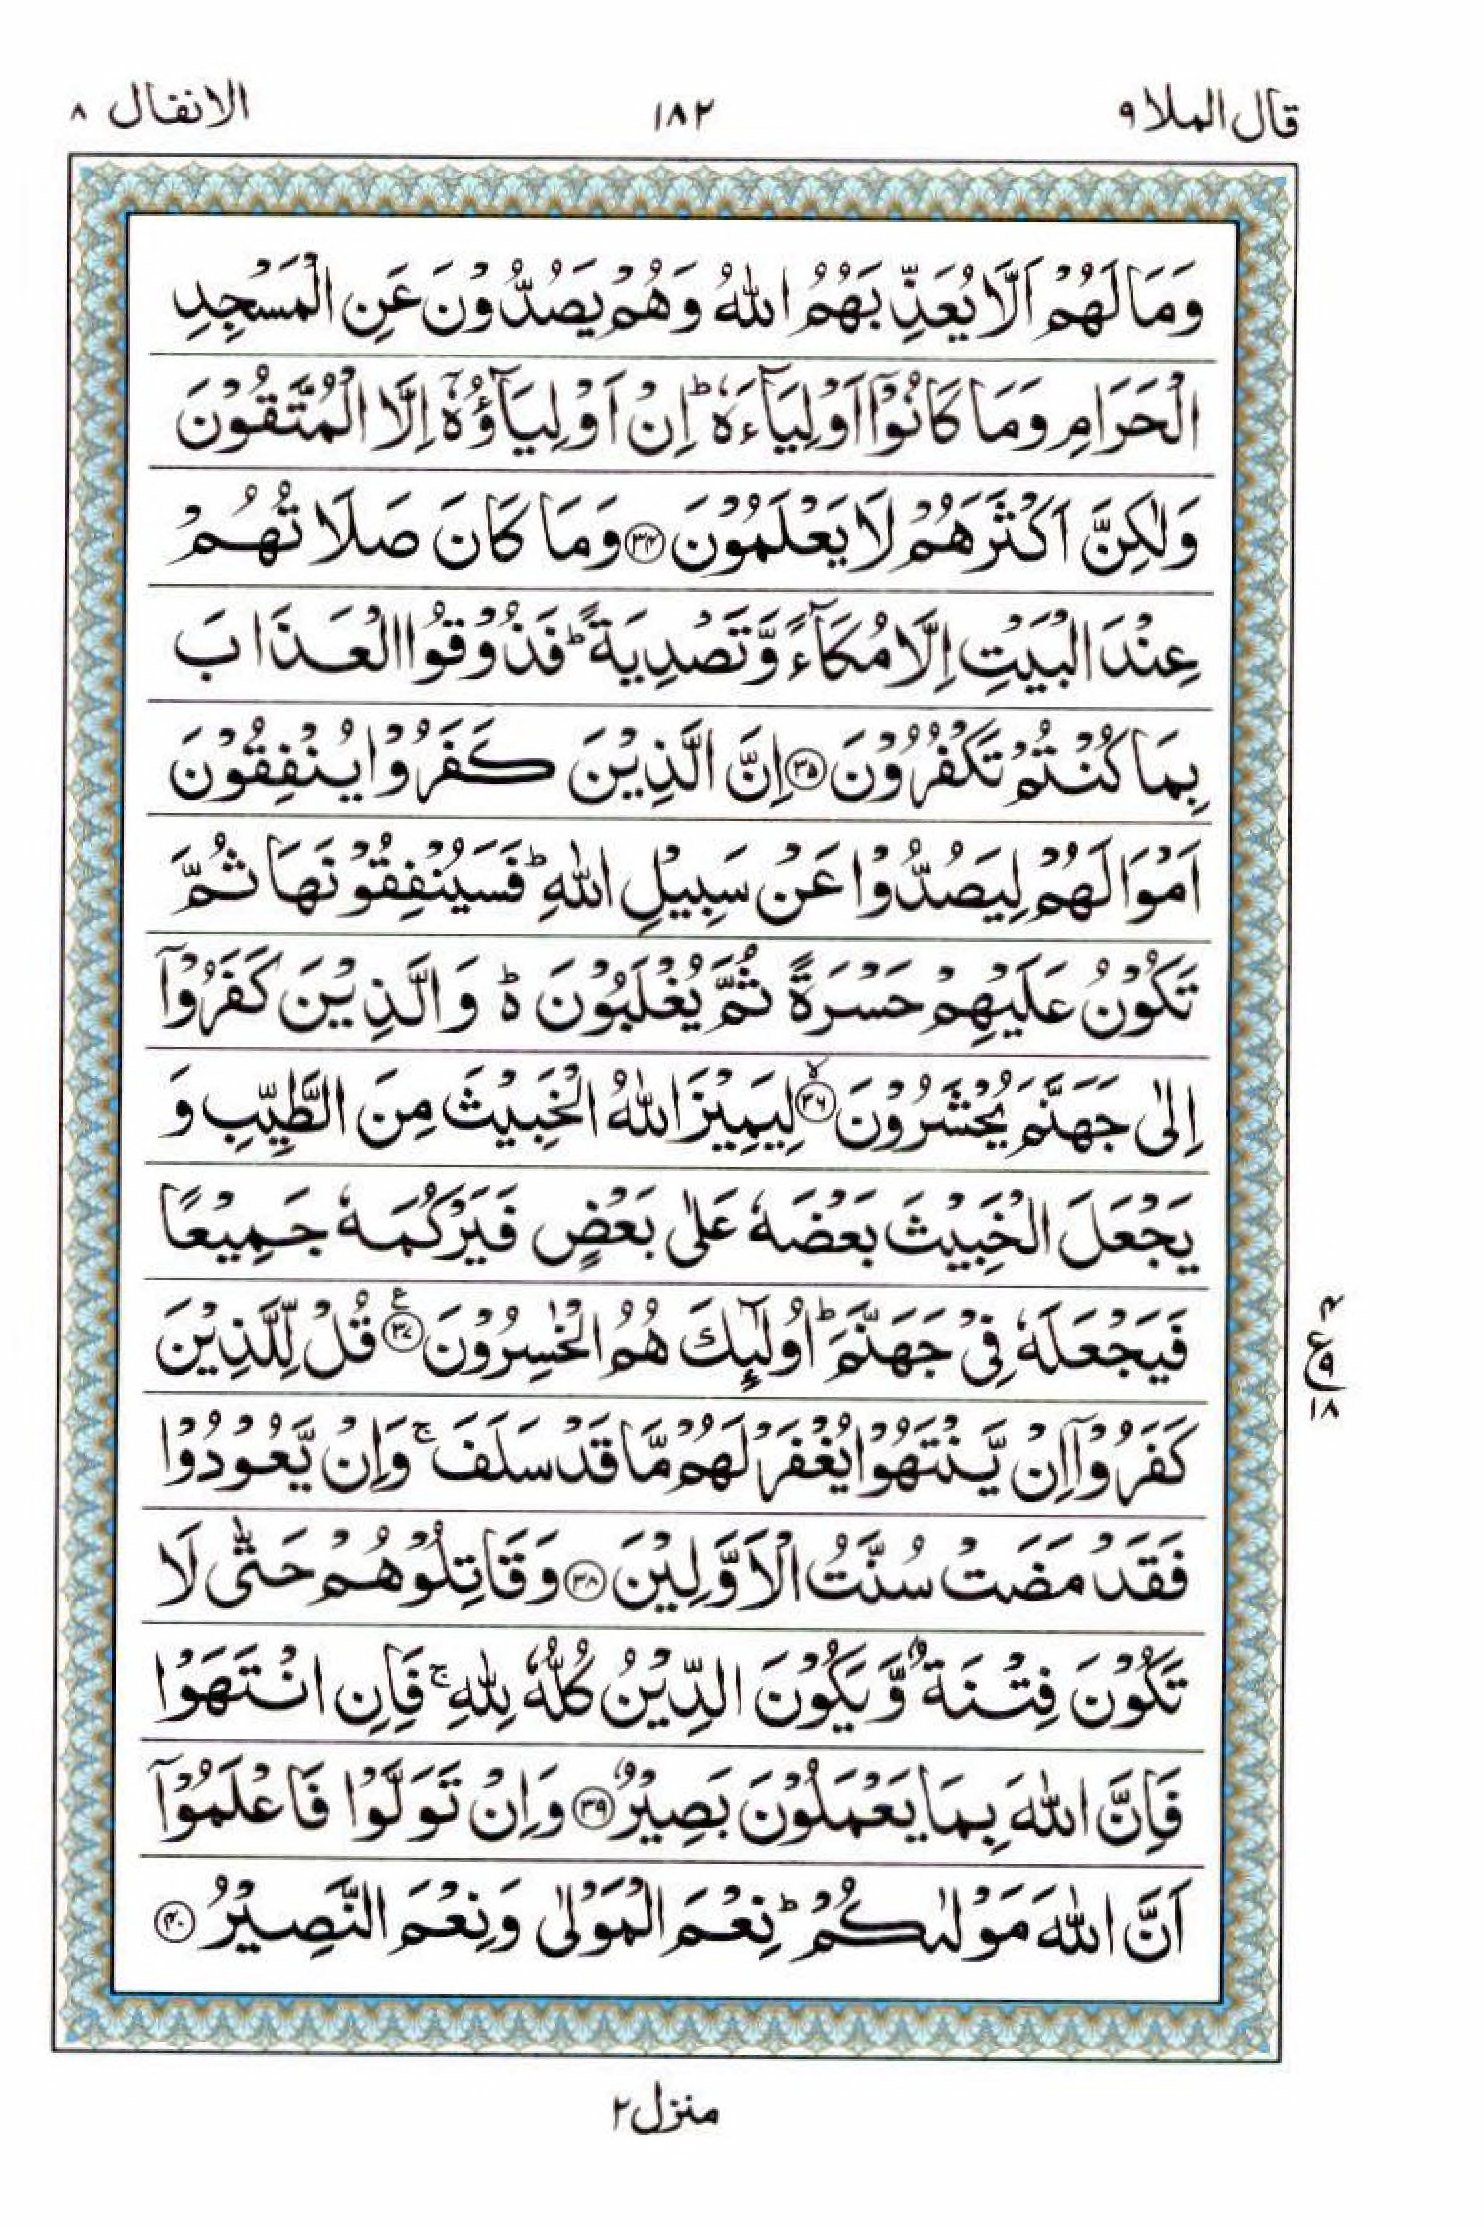 قال الملا ۹
۱۸۲
الانفال ۸
وَمَا لَهُمْ اَلَّا يُعَذِّبَهُمُ اللّٰهُ وَهُمْ يَصُدُّوْنَ عَنِ الْمَسْجِدِ
الْحَرَامِ وَمَا كَانُوْۤا اَوْلِيَآءَهٗ ؕ اِنْ اَوْلِيَآؤُهٗۤ اِلَّا الْمُتَّقُوْنَ
وَلٰكِنَّ اَكْثَرَهُمْ لَا يَعْلَمُوْنَ ﴿۳۴﴾ وَمَا كَانَ صَلَاتُهُمْ
عِنْدَ الْبَيْتِ اِلَّا مُكَآءً وَّتَصْدِيَةً ؕ فَذُوْقُوا الْعَذَابَ
بِمَا كُنْتُمْ تَكْفُرُوْنَ ﴿۳۵﴾ اِنَّ الَّذِيْنَ كَفَرُوْا يُنْفِقُوْنَ
اَمْوَالَهُمْ لِيَصُدُّوْا عَنْ سَبِيْلِ اللّٰهِ ؕ فَسَيُنْفِقُوْنَهَا ثُمَّ
تَكُوْنُ عَلَيْهِمْ حَسْرَةً ثُمَّ يُغْلَبُوْنَ ؕ وَالَّذِيْنَ كَفَرُوْۤا
اِلٰى جَهَنَّمَ يُحْشَرُوْنَ ﴿۳۶﴾ۙ لِيَمِيْزَ اللّٰهُ الْخَبِيْثَ مِنَ الطَّيِّبِ وَ
يَجْعَلَ الْخَبِيْثَ بَعْضَهٗ عَلٰى بَعْضٍ فَيَرْكُمَهٗ جَمِيْعًا
فَيَجْعَلَهٗ فِيْ جَهَنَّمَ ؕ اُولٰٓئِكَ هُمُ الْخٰسِرُوْنَ ﴿۳۷﴾ ع قُلْ لِّلَّذِيْنَ
۴
ع
۹
۱۸
كَفَرُوْۤا اِنْ يَّنْتَهُوْا يُغْفَرْ لَهُمْ مَّا قَدْ سَلَفَ ۚ وَاِنْ يَّعُوْدُوْا
فَقَدْ مَضَتْ سُنَّتُ الْاَوَّلِيْنَ ﴿۳۸﴾ وَقَاتِلُوْهُمْ حَتّٰى لَا
تَكُوْنَ فِتْنَةٌ وَّيَكُوْنَ الدِّيْنُ كُلُّهٗ لِلّٰهِ ۚ فَاِنِ انْتَهَوْا
فَاِنَّ اللّٰهَ بِمَا يَعْمَلُوْنَ بَصِيْرٌ ﴿۳۹﴾ وَاِنْ تَوَلَّوْا فَاعْلَمُوْۤا
اَنَّ اللّٰهَ مَوْلٰىكُمْ ؕ نِعْمَ الْمَوْلٰى وَنِعْمَ النَّصِيْرُ ﴿۴۰﴾
منزل ۲